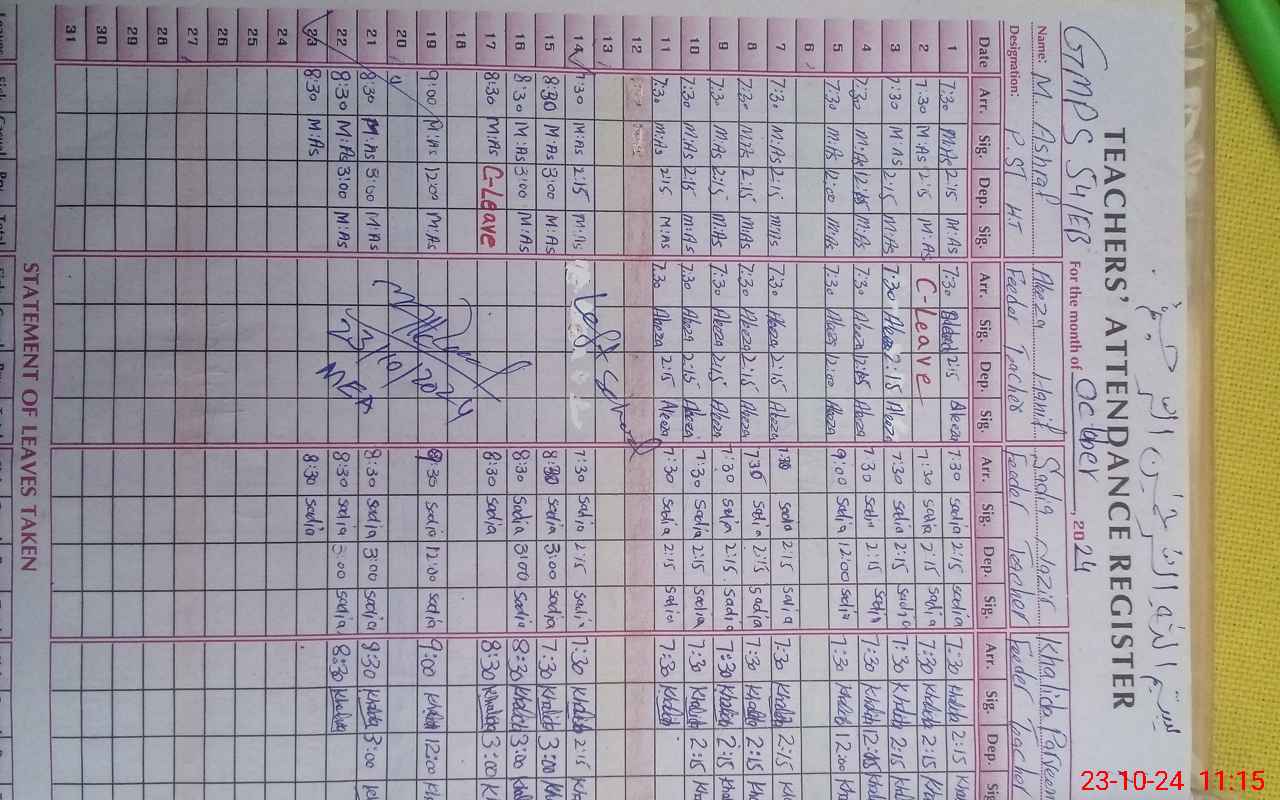 TEACHERS' ATTENDANCE REGISTER
GMPS 54/EB For the month of October, 2024
Name: M. Ashraf Aleeza Hanif Sadia Nazir Khalida Parveen
Designation: PST HT Feeder Teacher Feeder Teacher Feeder Teacher
Date Arr. Sig. Dep. Sig. Arr. Sig. Dep. Sig. Arr. Sig. Dep. Sig. Arr. Sig. Dep.
1 7:30 M:As 2:15 M:As 7:30 2:15 Aleeza 7:30 sadia 2:15 sadia 7:30 Khalida 2:15
2 7:30 M:As 2:15 M:As C-Leave 7:30 sadia 2:15 sadia 7:30 Khalida 2:15
3 7:30 M:As 2:15 M:As 7:30 Aleeza 2:15 Aleeza 7:30 sadia 2:15 sadia 7:30 Khalida 2:15
4 7:30 M:As 12:05 M:As 7:30 Aleeza 12:05 Aleeza 7:30 sadia 2:15 sadia 7:30 Khalida 12:05
5 7:30 M:As 12:00 M:As 7:30 Aleeza 12:00 Aleeza 9:00 sadia 12:00 sadia 7:30 Khalida 12:00
6
7 7:30 M:As 2:15 M:As 7:30 Aleeza 2:15 Aleeza 7:30 sadia 2:15 sadia 7:30 Khalida 2:15
8 7:30 M:As 2:15 M:As 7:30 Aleeza 2:15 Aleeza 7:30 sadia 2:15 sadia 7:30 Khalida 2:15
9 7:30 M:As 2:15 M:As 7:30 Aleeza 2:15 Aleeza 7:30 sadia 2:15 sadia 7:30 Khalida 2:15
10 7:30 M:As 2:15 M:As 7:30 Aleeza 2:15 Aleeza 7:30 sadia 2:15 sadia 7:30 Khalida 2:15
11 7:30 M:As 2:15 M:As 7:30 Aleeza 2:15 Aleeza 7:30 sadia 2:15 sadia 7:30 Khalida
12
13
14 7:30 M:As 2:15 M:As Left School 7:30 sadia 2:15 sadia 7:30 Khalida 2:15
15 8:30 M:As 3:00 M:As 8:30 sadia 3:00 sadia 7:30 Khalida 3:00
16 8:30 M:As 3:00 M:As 8:30 sadia 3:00 sadia 8:30 Khalida 3:00
17 8:30 M:As C-Leave 8:30 sadia 8:30 Khalida 3:00
18
19 9:00 M:As 12:00 M:As 8:30 sadia 12:00 sadia 9:00 Khalida 12:00
20
21 8:30 M:As 3:00 M:As 8:30 sadia 3:00 sadia 8:30 Khalida 3:00
22 8:30 M:As 3:00 M:As 8:30 sadia 3:00 sadia 8:30 Khalida
23 8:30 M:As 8:30 sadia
23/10/2024
MEA
24
25
26
27
28
29
30
31
STATEMENT OF LEAVES TAKEN
23-10-24 11:15